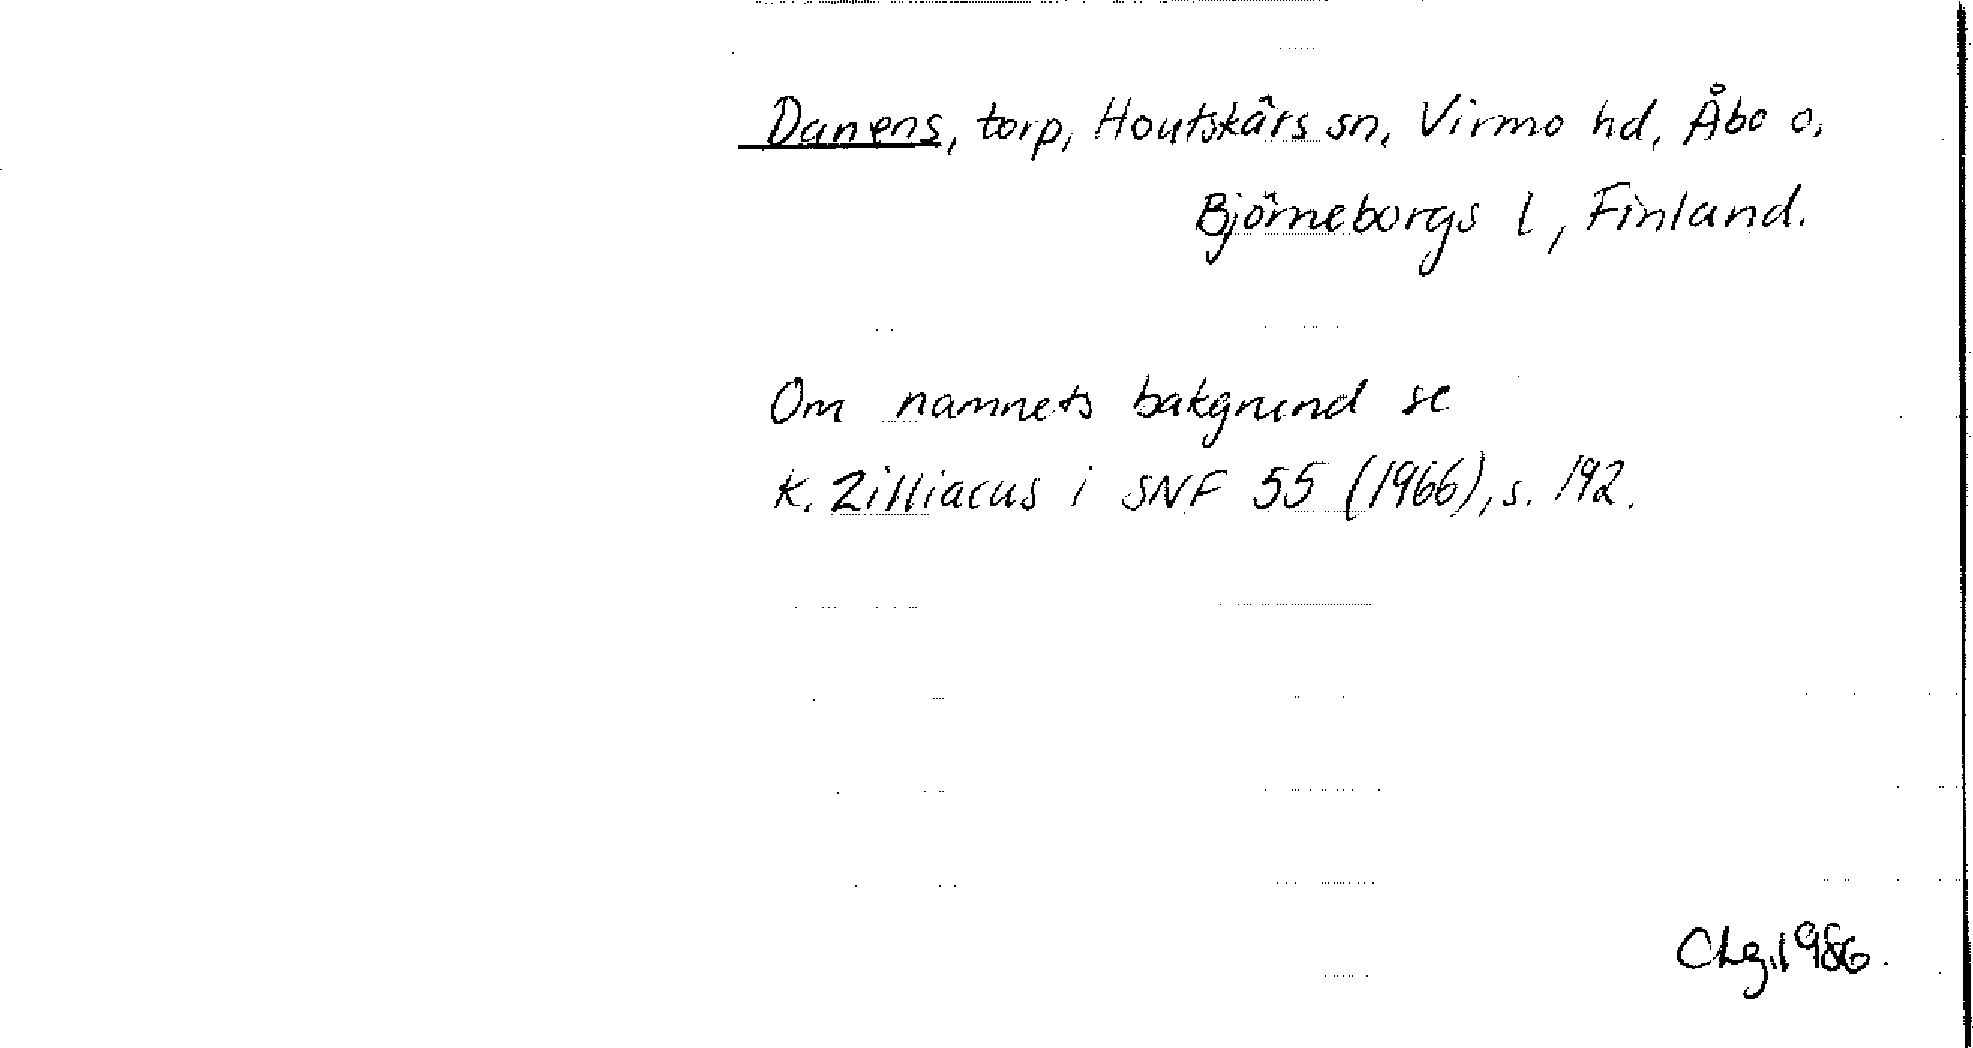 Danens, torp, Houtskärs sn, Virmo hd, Åbo o.
Björneborgs l, Finland.
Om namnets bakgrund se
K. Zilliacus i SNF 55 (1966), s. 192.
Chg. 1986.